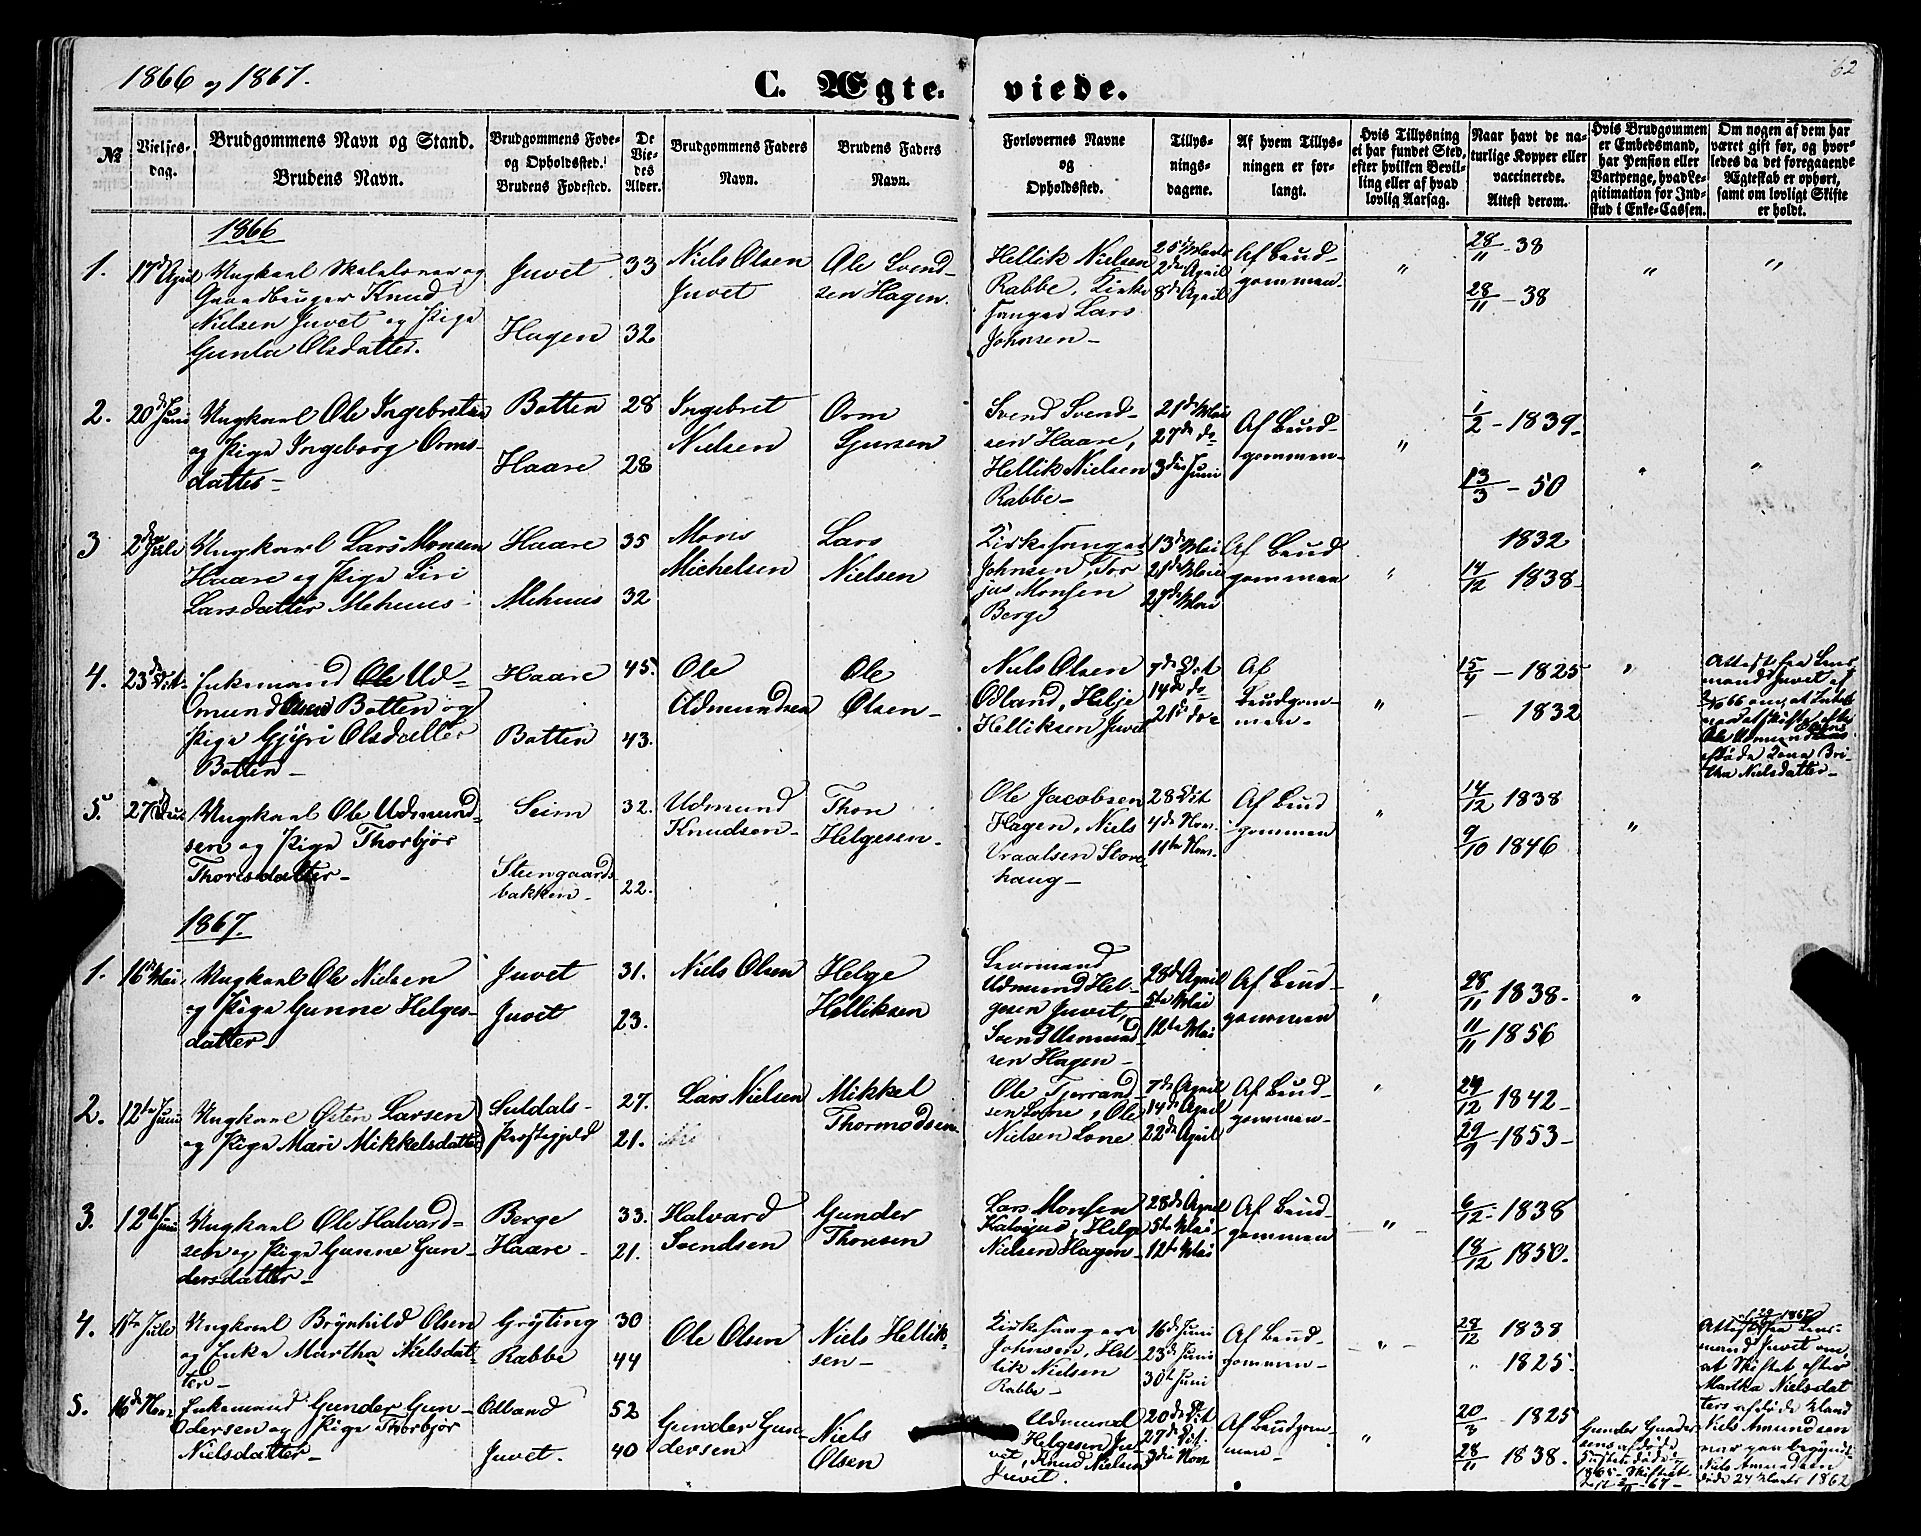 1866 og 1867.
C. Ægteviede.
62
№
Vielses-dag.
Brudgommens Navn og Stand.
Brudens Navn.
Brudgommens Føde- og Opholdssted.
Brudens Fødested.
De Viedes Alder.
Brudgommens Faders Navn.
Brudens Faders Navn.
Forlovernes Navne og Opholdssted.
Tillysningsdagene.
Af hvem Tillysningen er forlangt.
Hvis Tillysning ei har fundet Sted, efter hvilken Bevilling eller af hvad lovlig Aarsag.
Naar havt de naturlige Kopper eller vaccinerede.
Attest derom.
Hvis Brudgommen er Embedsmand, har Pension eller Vartpenge, hvad Legitimation for Indskud i Enke-Cassen.
Om nogen af dem har været gift før, og hvorledes da det foregaaende Ægteskab er ophørt, samt om lovligt Skifte er holdt.
1866
1. 17de April Ungkarl Skolelærer og Gaardbruger Knud Nielsen Juvet og Pige Gunla Olsdatter. Juvet 33 Hagen 32 Niels Olsen Juvet Ole Svendsen Hagen. Hellik Nielsen Rabbe, Kirkesanger Lars Johnsen - 25de Marts 2den April 8de April Af Brudgommen - " 28/11 - 38 28/11 - 38 " "
2. 20de Juni Ungkarl Ole Ingebretsen og Pige Ingeborg Ormsdatter - Botten 28 Haare 28 Ingebret Nielsen Orm Gjursen Svend Svendsen Haare, Hellik Nielsen Rabbe - 21de Mai 27de do 3die Juni Af Brudgommen - " 1/2 - 1839 - 13/3 - 50 " "
3 2den Jule Ungkarl Lars Monsen Haare og Pige Siri Larsdatter Mehuus - Haare 35 Mehuus 32 Mons Michelsen Lars Nielsen Kirkesanger Johnsen, Torjus Monsen Berge 13de Mai 21de Mai 27de Mai Af Brudgommen " 1832 14/12 1838 -
4. 23de Oct. Enkemand Ole Udmund Olsen Botten og Pige Gjyri Olsdatter Botten - Haare 45. Botten 43. Ole Udmundsen Ole Olsen - Niels Olsen Odland, Helje Helliksen Juvet 7de Oct 14de do 21de do Af Brudgommen - " 15/9 - 1825 - 1832 " Attest fra Lensmand Juvet af 2/10 66 om, at Intet var at skifte efter Ole Udmund Olsens afdøde Kone Britha Nielsdatter -
5. 27de Dec Ungkarl Ole Udmundsen og Pige Thorbjør Thoresdatter - Seim 32. Steengaardsbakken - 22. Udmund Knudsen - Thore Helgesen - Ole Jacobsen Hagen, Niels Vraalsen Storehaug - 28 Oct 4de Nov. 11te Nov. Af Brudgommen " 14/12 1838 9/10 1846 "
1867.
1. 16de Mai Ungkarl Ole Nielsen og Pige Gunne Helgesdatter - Juvet 31. Juvet 23. Niels Olsen Helge Helliksen Lensmand Udmund Helgesen Juvet, Svend Asmundsen Hagen - 28de April 5te Mai 12te Mai Af Brudgommen " 28/11 1838 - 11/11 1856 "
2. 12te Juni Ungkarl Østen Larsen og Pige Mari Mikkelsdatter Suldals Præstegjeld 27. 21. Lars Nielsen Mikkel Thormodsen Ole Tjerrandsen Lone, Ole Nielsen Lone 7de April 14de April 22de April Af Brudgommen - " 29/12 1842 - 29/9 - 1853 -
3. 12te Juni Ungkarl Ole Halvardsen og Pige Gunne Gundersdatter - Berge 33. Haare - 21. Halvard Svendsen Gunder Thorsen Lars Monsen Kalvejus, Helge Nielsen Hagen - 28de April 5te Mai - 12te Mai Af Brudgommen - " - 6/12 - 1838 18/12 1850.
4. 11te Jule Ungkarl Brynhild Olsen og Enke Martha Nielsdatter - Grytting 30 Rabbe 44 Ole Olsen Niels Helliksen - Kirkesanger Johnsen, Hellik Nielsen Rabbe - 16de Juni 23de Juni 30te Juni Af Brudgommen - - " - 28/12 1838 " 1825 - Attest fra Lensmand Juvet om, at Skiftet efter Martha Nielsdatters afdøde Mand Niels Amundsen var paabegyndt Niels Amundsen døde 24 Marts 1862
5. 16de Nov. Enkemand Gunder Gundersen og Pige Thorbjør Nielsdatter - Odland 52 Juvet. 40 Gunder Gundersen Niels Olsen Udmund Helgesen Juvet, Knud Nielsen Juvet. 20de Oct 27de Oct. 3die Nov Af Brudgommen - " 20/3 - 1825 28/11 1838. Gunder Gundersens afdøde Hustru døde 1865 -